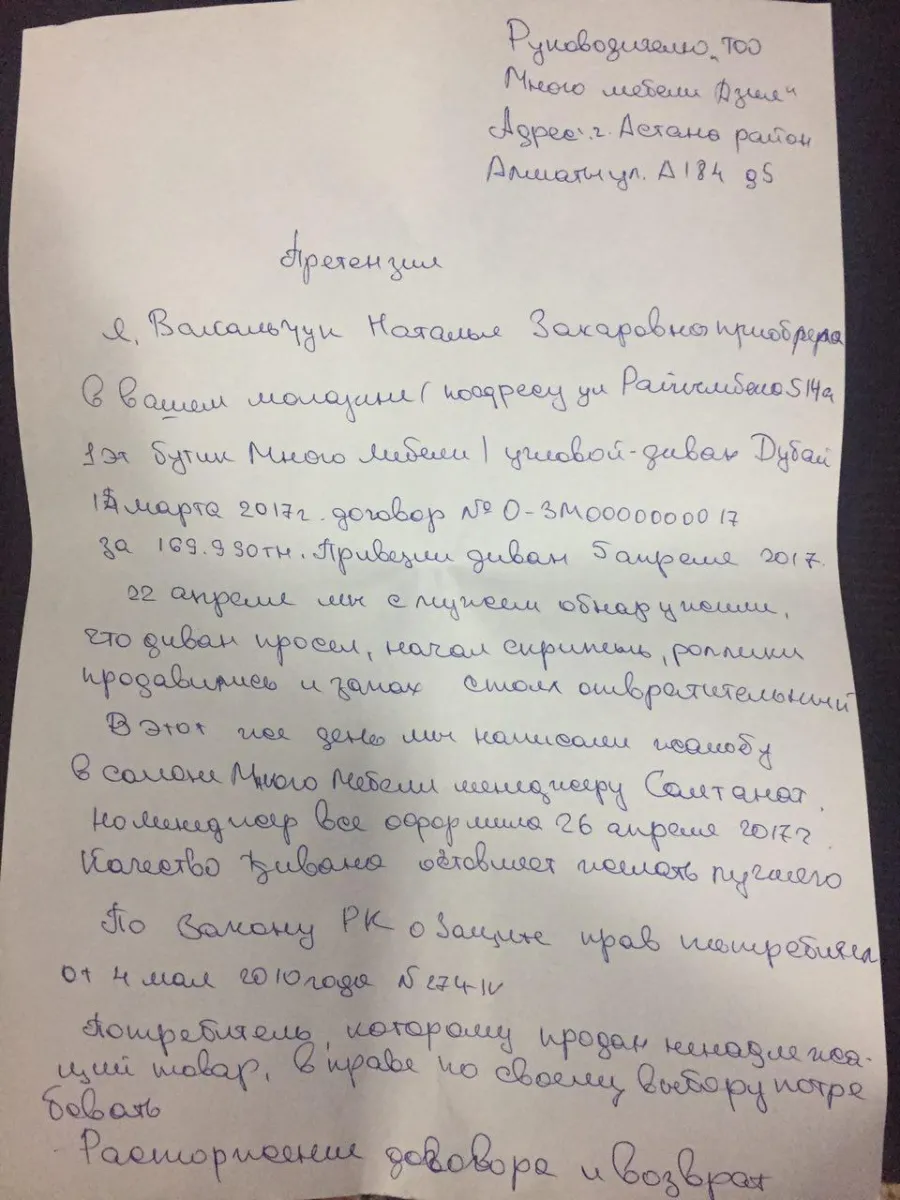 Руководителю "ТОО
Много мебели Азия"
Адрес: г. Астана район
Алматы ул. А184 д5
Претензия
Я, Наталья Захаровна приобрела
в вашем магазине (по адресу ул 14а
1эт бутик Много Мебели) угловой-диван Дубай
марта 2017г. договор № 0-ЗМ0000000017
за 169.990тн. Привезли диван 5 апреля 2017.
22 апреля мы с мужем обнаружили,
что диван просел, начал скрипеть, роллики
продавились и запах стоял отвратительный
В этот же день мы написали жалобу
в салоне Много Мебели менеджеру Салтанат,
но менеджер все оформила 26 апреля 2017г
Качество дивана оставляет желать лучшего
По Закону РК о Защите прав потребител
от 4 мая 2010 года N 274-IV
Потребитель, которому продан ненадлежа-
щий товар, в праве по своему выбору потре
бовать
- Расторжение договора и возврат